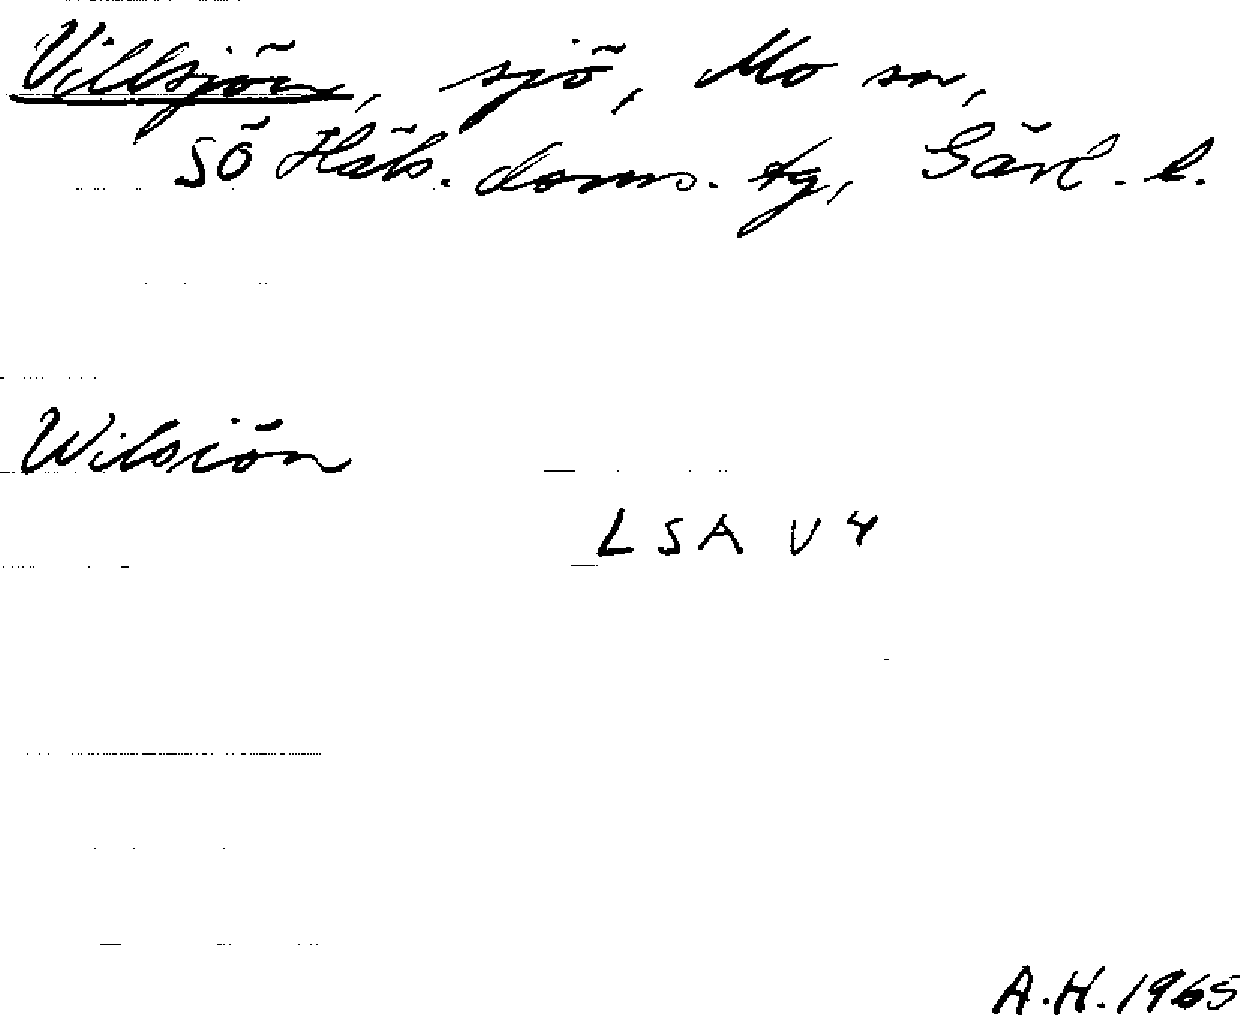 Villsjön, sjö, Mo sn,
SÖ Häls. doms. tg, Gävl. l.
Wilsiön
LSA V4
A.H. 1965